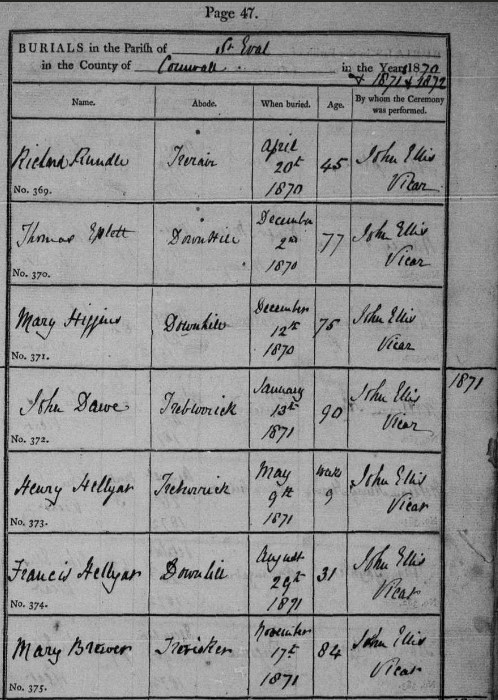 Page 47.
BURIALS in the Parish of St Eval
in the County of Cornwall in the Year 1870
& 1871 & 1872
Name. Abode. When buried. Age. By whom the Ceremony was performed.
Richard Rundle
No. 369.
April 20th 1870 45 John Ellis Vicar
Thomas
No. 370.
DownHill December 2nd 1870 77 John Ellis Vicar
Mary Higgins
No. 371.
Downhill December 12th 1870 75 John Ellis Vicar
1871
John Dawe
No. 372.
January 13th 1871 90 John Ellis Vicar
Henry Hellyar
No. 373.
May 9th 1871 weeks 9 John Ellis Vicar
Francis Hellyar
No. 374.
Downhill August 29th 1871 31 John Ellis Vicar
Mary Brewer
No. 375.
Trerisker November 17th 1871 84 John Ellis Vicar